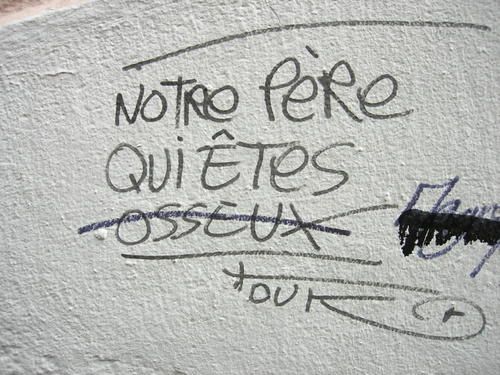 NOTRE PÈRE
QUI ÊTES
OSSEUX